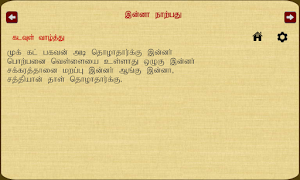 இன்னா நாற்பது
கடவுள் வாழ்த்து
முக் கட் பகவன் அடி தொழாதார்க்கு இன்னா
பொற்பனை வெள்ளையை உள்ளாது ஒழுகு இன்னா
சக்கரத்தானை மறப்பு இன்னா ஆங்கு இன்னா,
சத்தியான் தாள் தொழாதார்க்கு.